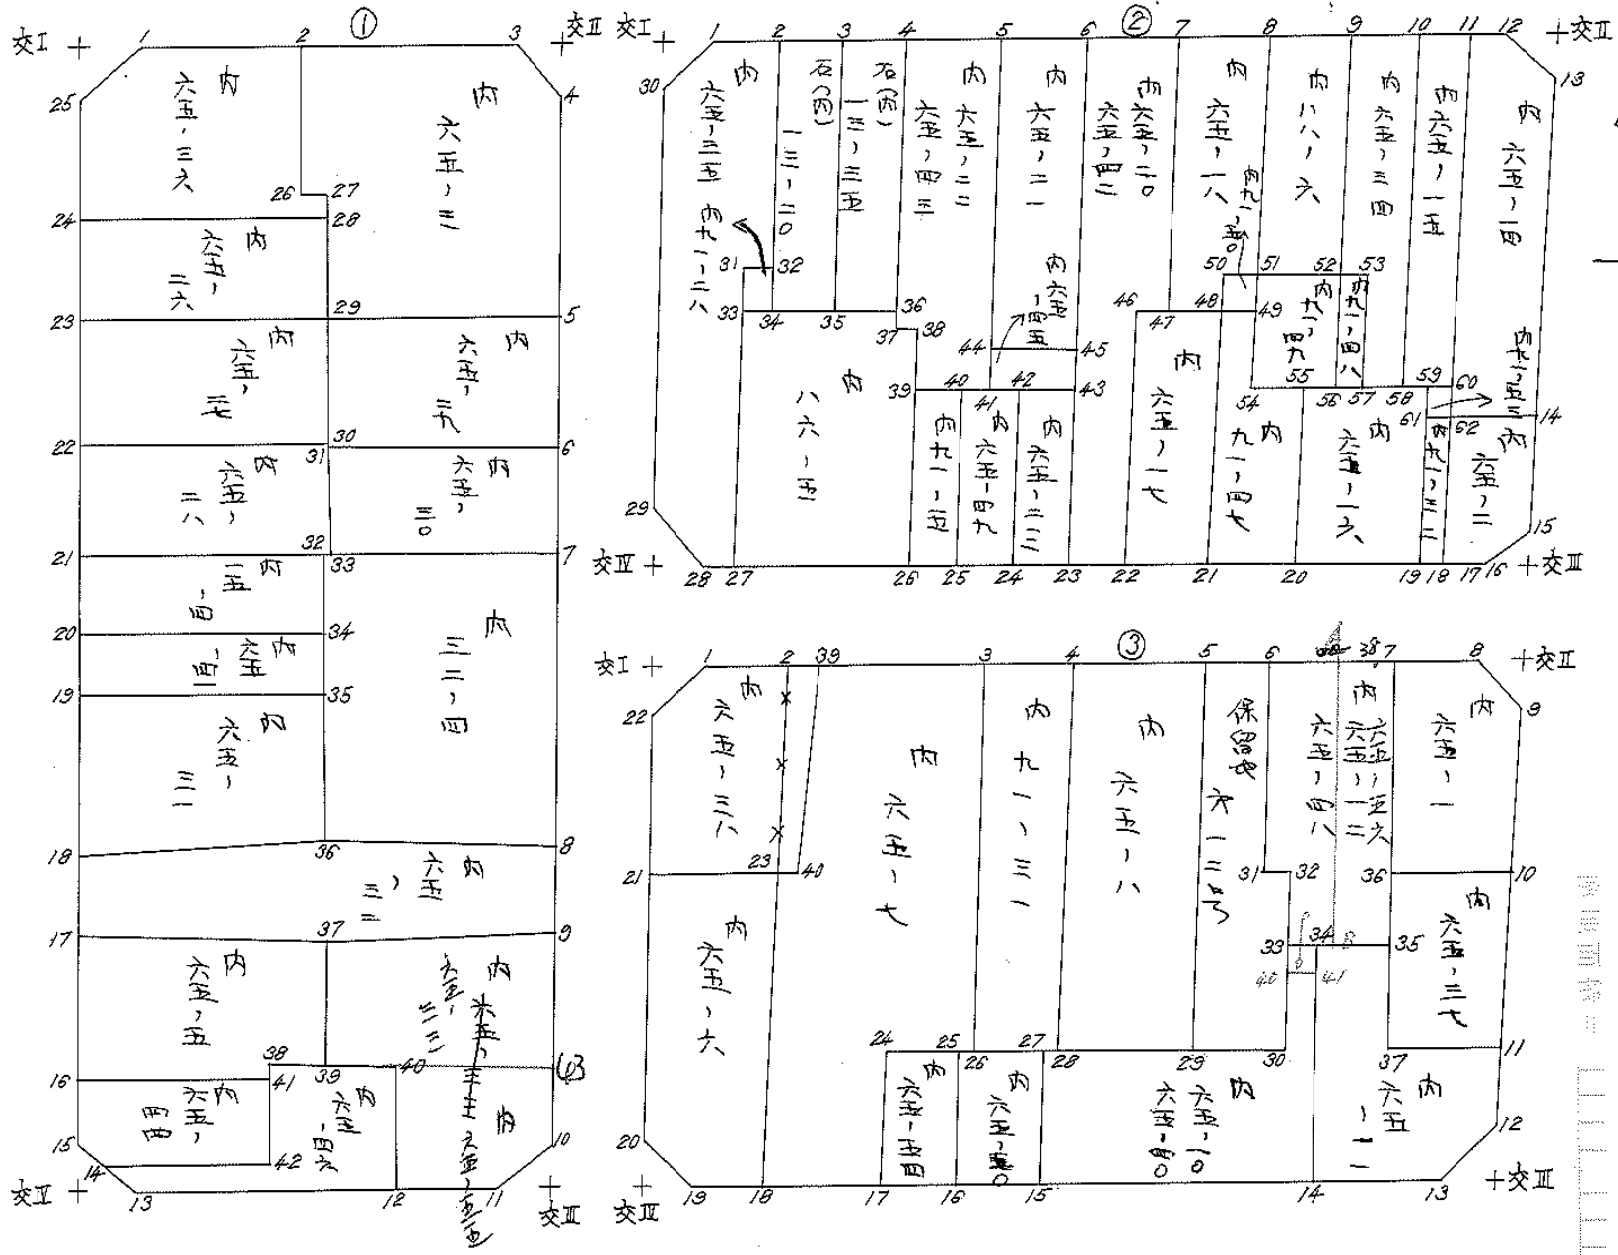 ①
交Ⅰ
1
2
3
交Ⅱ
25
4
内
六五、三六
内
六五、三
26
27
24
28
内
六五、
二六
23
29
5
内
六五、
内
六五、
二九
22
30
31
6
内
六五、
二八
内
六五、
三〇
21
32
33
7
内
一五
、四
20
34
内
六五
、四一
内
三二、四
19
35
内
六五、
三一
18
36
8
内
六五
、
三二
17
37
9
内
六五、五
内
六五、
三三
16
38
39
40
43
41
内
六五、
四四
内
六五
、四六
内
六五、五五
15
14
42
10
交Ⅳ
13
12
11
交Ⅲ
②
交Ⅰ
1
2
3
4
5
6
7
8
9
10
11
12
交Ⅱ
30
13
内
六五、三五
石(内)
一三、二〇
石(内)
一三、三五
内
六五、二二
六五、四三
内
六五、二一
内六五、二〇
六五、四二
内
六五、一八
内八八、六
内六五、三四
内六五、一五
内
六五、一四
内九一、二八
31
32
33
34
35
36
37
38
内六五
、四五
44
45
39
40
41
42
43
46
47
48
49
内九一、五〇
50
51
52
53
内九一、四九
内九一、四八
54
55
56
57
58
59
60
61
62
内九一、五三
14
内
八六、五
内九一、五
内六五、四九
内六五、二三
内
六五、一七
内
九一、四七
内
六五、一六
内九一、三二
内
六五、二
29
15
交Ⅳ
28
27
26
25
24
23
22
21
20
19
18
17
16
交Ⅲ
③
交Ⅰ
1
2
39
3
4
5
6
38
7
8
交Ⅱ
22
9
内
六五、三八
内
六五、七
内
九一、三一
内
六五、八
保留地
六一二号
内
六五、五六
六五、一二
六五、四八
内
六五、一
21
23
40
31
32
36
10
33
34
B
35
40
41
内
六五、六
内
六五、三七
24
25
26
27
28
29
30
37
11
内
六五、五四
内
六五、五〇
内
六五、一〇
六五、四〇
内
六五
、一一
20
12
交Ⅳ
19
18
17
16
15
14
13
交Ⅲ